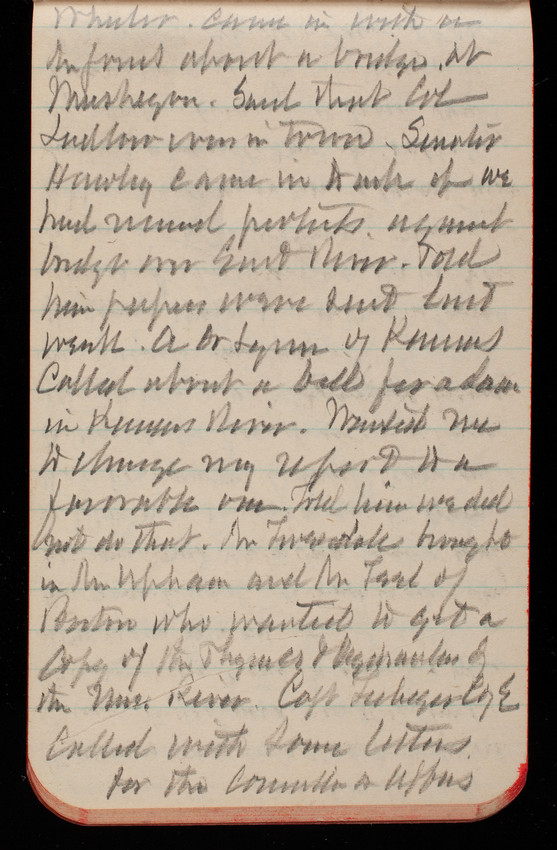 Wheeler. came in with a
Mr Jones about a bridge at
Muskegon. Said that Col
Ludlow was in town. Senator
Hawley came in to ask if we
had received protests against
bridge over East River. Told
him papers were sent last
week. A Dr Lynn of Kansas
Called about a bill for a dam
in Kansas River. Wanted me
to change my report to a
favorable one. Told him we did
not do that. Mr brought
in Mr Upham and Mr of
Boston who wanted to get a
Copy of the Physics & Hydraulics of
the Miss. River. Capt
Called with some letters
for the